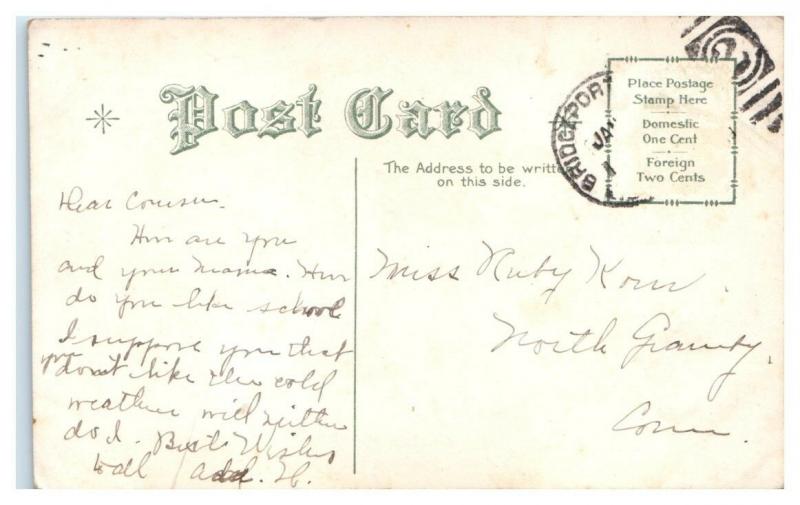 Post Card
The Address to be writt
on this side.
Place Postage
Stamp Here
Domestic
One Cent
Foreign
Two Cents
BRIDGEPOR
JA
Dear Cousin.
How are you
and your Mama. How
do you like school
I suppose you that
you don't like the cold
weather will neither
do I. Best Wishes
to all Add. H.
Miss Ruby
North Granby,
Conn.